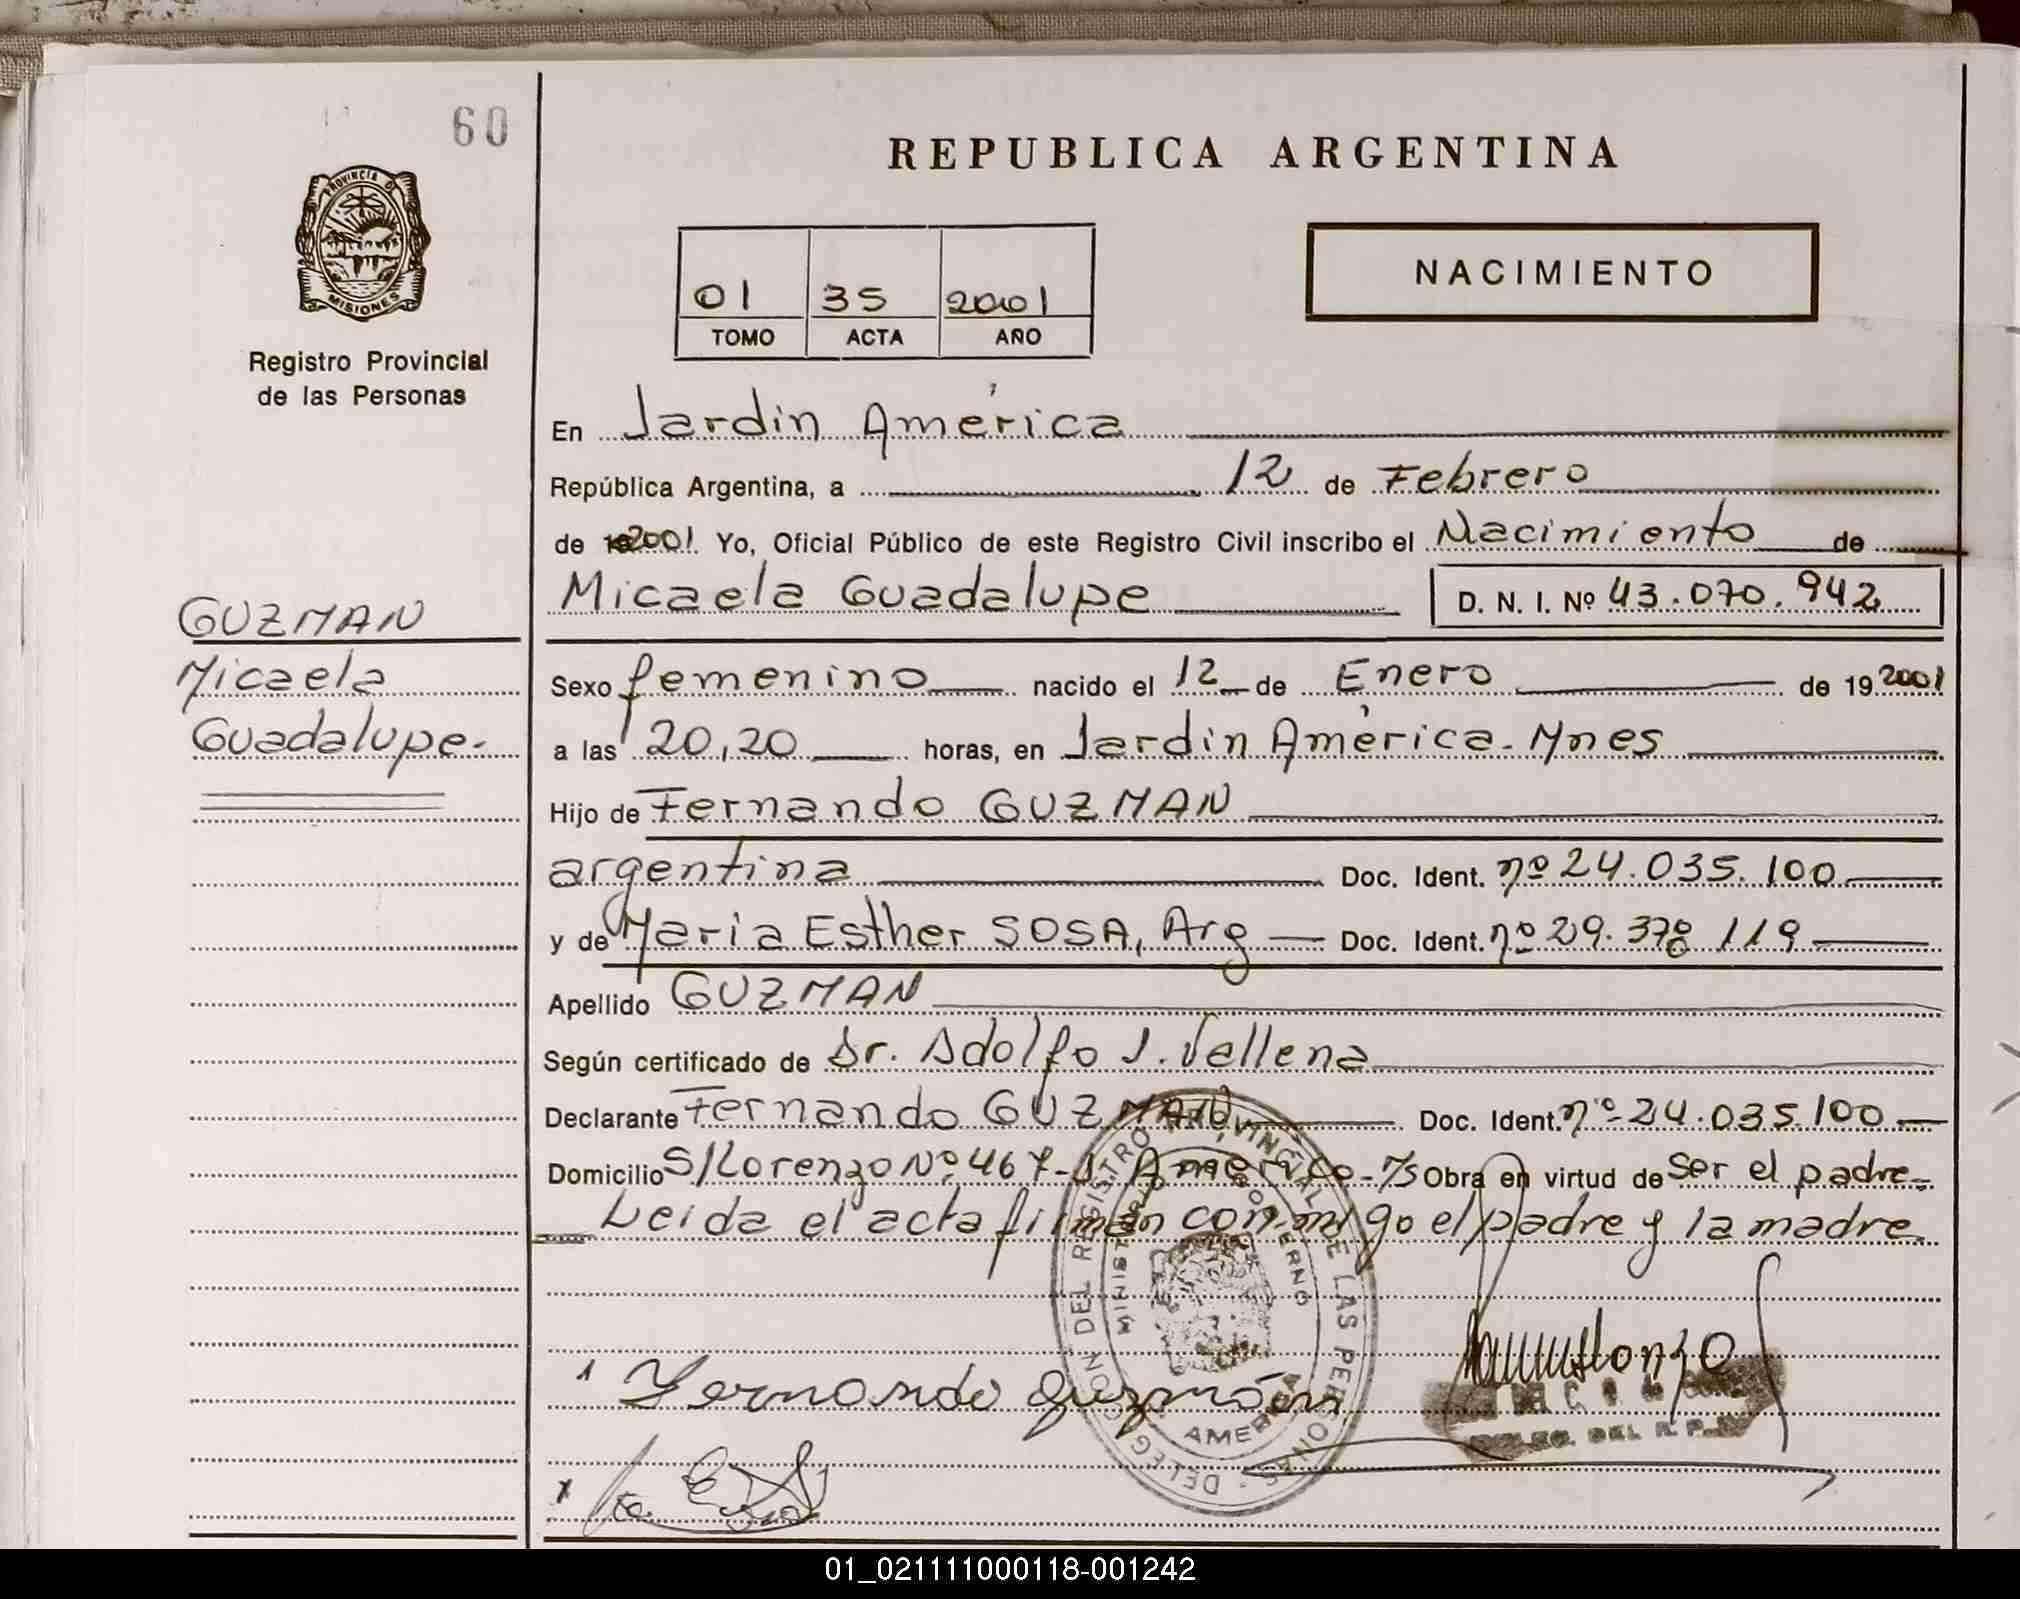 60
REPUBLICA ARGENTINA
PROVINCIA DE
MISIONES
Registro Provincial
de las Personas
01 35 2001
TOMO ACTA AÑO
NACIMIENTO
En Jardín América
República Argentina, a 12 de Febrero
de 2001 Yo, Oficial Público de este Registro Civil inscribo el Nacimiento de
Micaela Guadalupe D. N. I. Nº 43.070.942
GUZMAN
Micaela
Guadalupe.
Sexo femenino nacido el 12 de Enero de 19 2001
a las 20,20 horas, en Jardin América - Mnes
Hijo de Fernando GUZMAN
argentina Doc. Ident. nº 24.035.100
y de Maria Esther SOSA, Arg Doc. Ident. nº 29.378 119
Apellido GUZMAN
Según certificado de Dr. Adolfo J. Vallena
Declarante Fernando GUZMAN Doc. Ident. nº 24.035.100
Domicilio S/Lorenzo Nº 467 - J. América - Obra en virtud de ser el padre
Leida el acta firman conmigo el padre y la madre
DELEGACION DEL REGISTRO PROVINCIAL DE LAS PERSONAS
MINISTERIO GOBIERNO
AMERICA
Fernando Guzmán
DEL R. P.
01_021111000118-001242